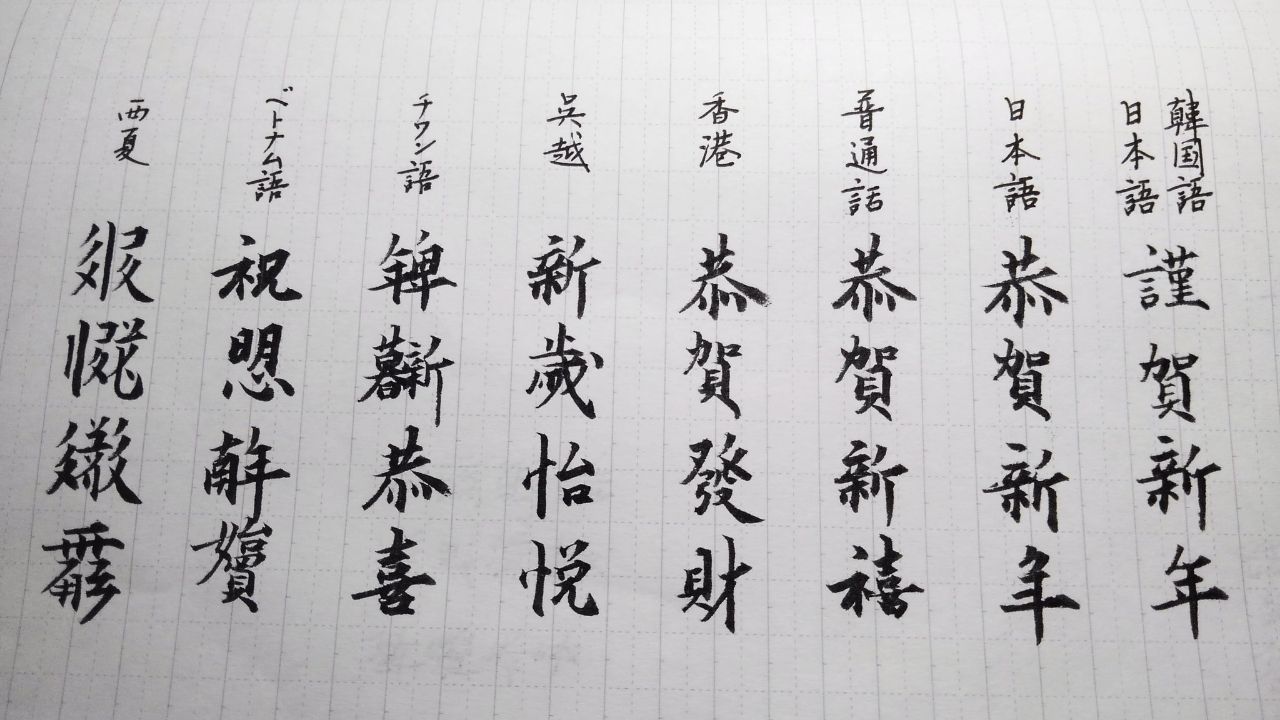 韓国語
日本語
謹賀新年
日本語
恭賀新年
普通話
恭賀新禧
香港
恭賀發財
呉越
新歲怡悦
チワン語
恭喜
ベトナム語
祝𢜏𢆥𡤓
西夏